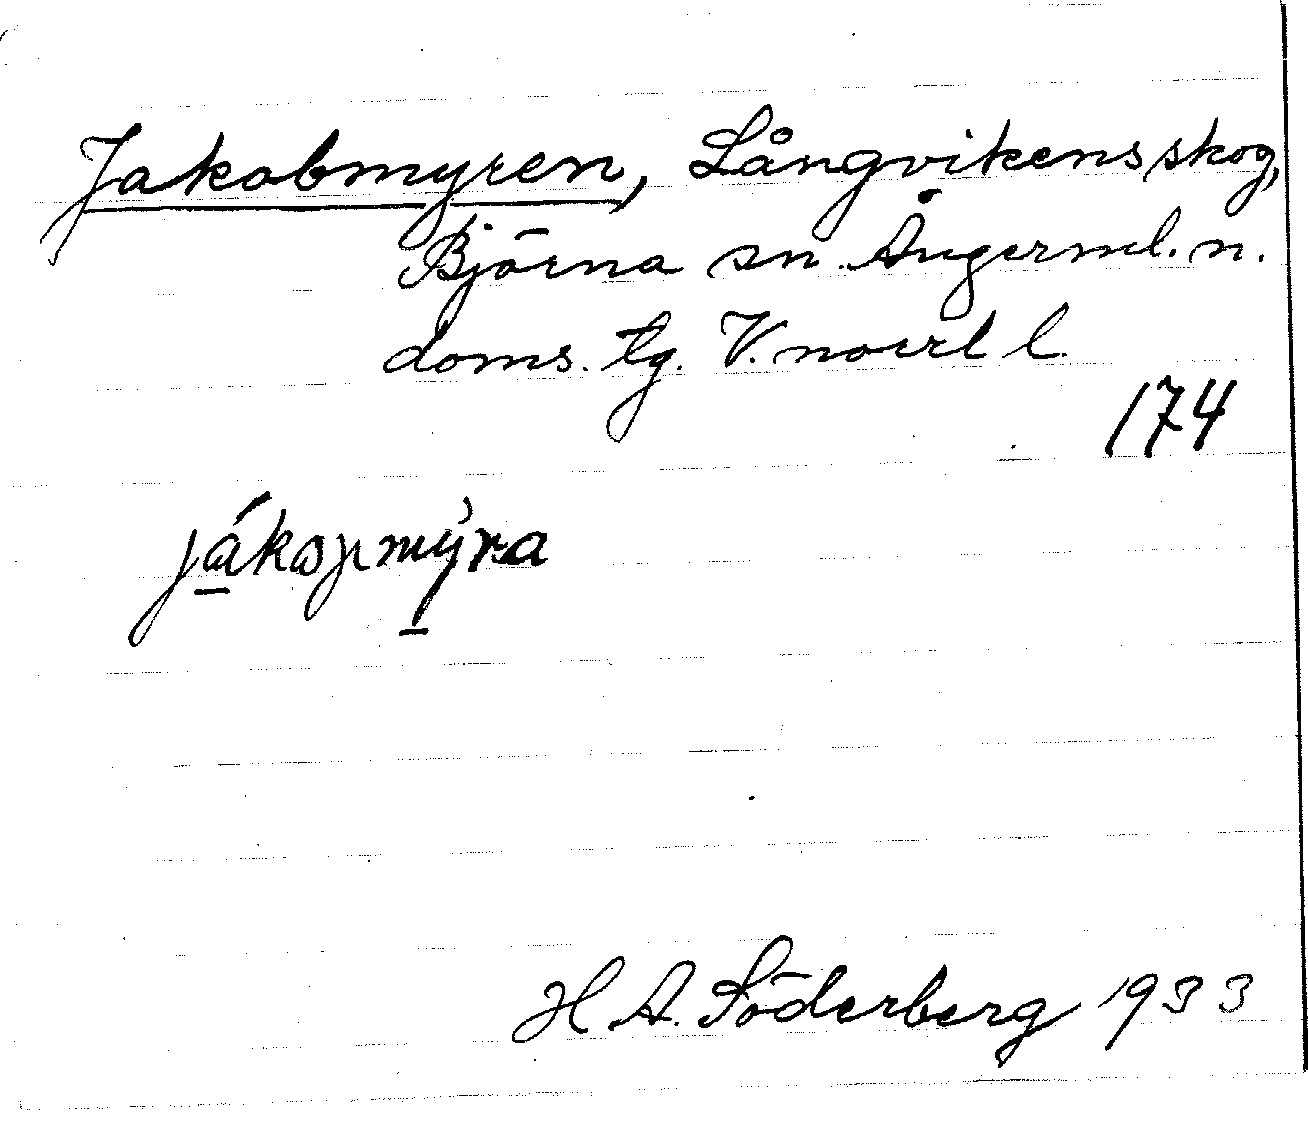 Jakobmyren, Långvikensskog,
Björna sn. Ångerml. n.
doms. tg. V. norrl l.
174
jákopmýra
H. A. Söderberg 1933